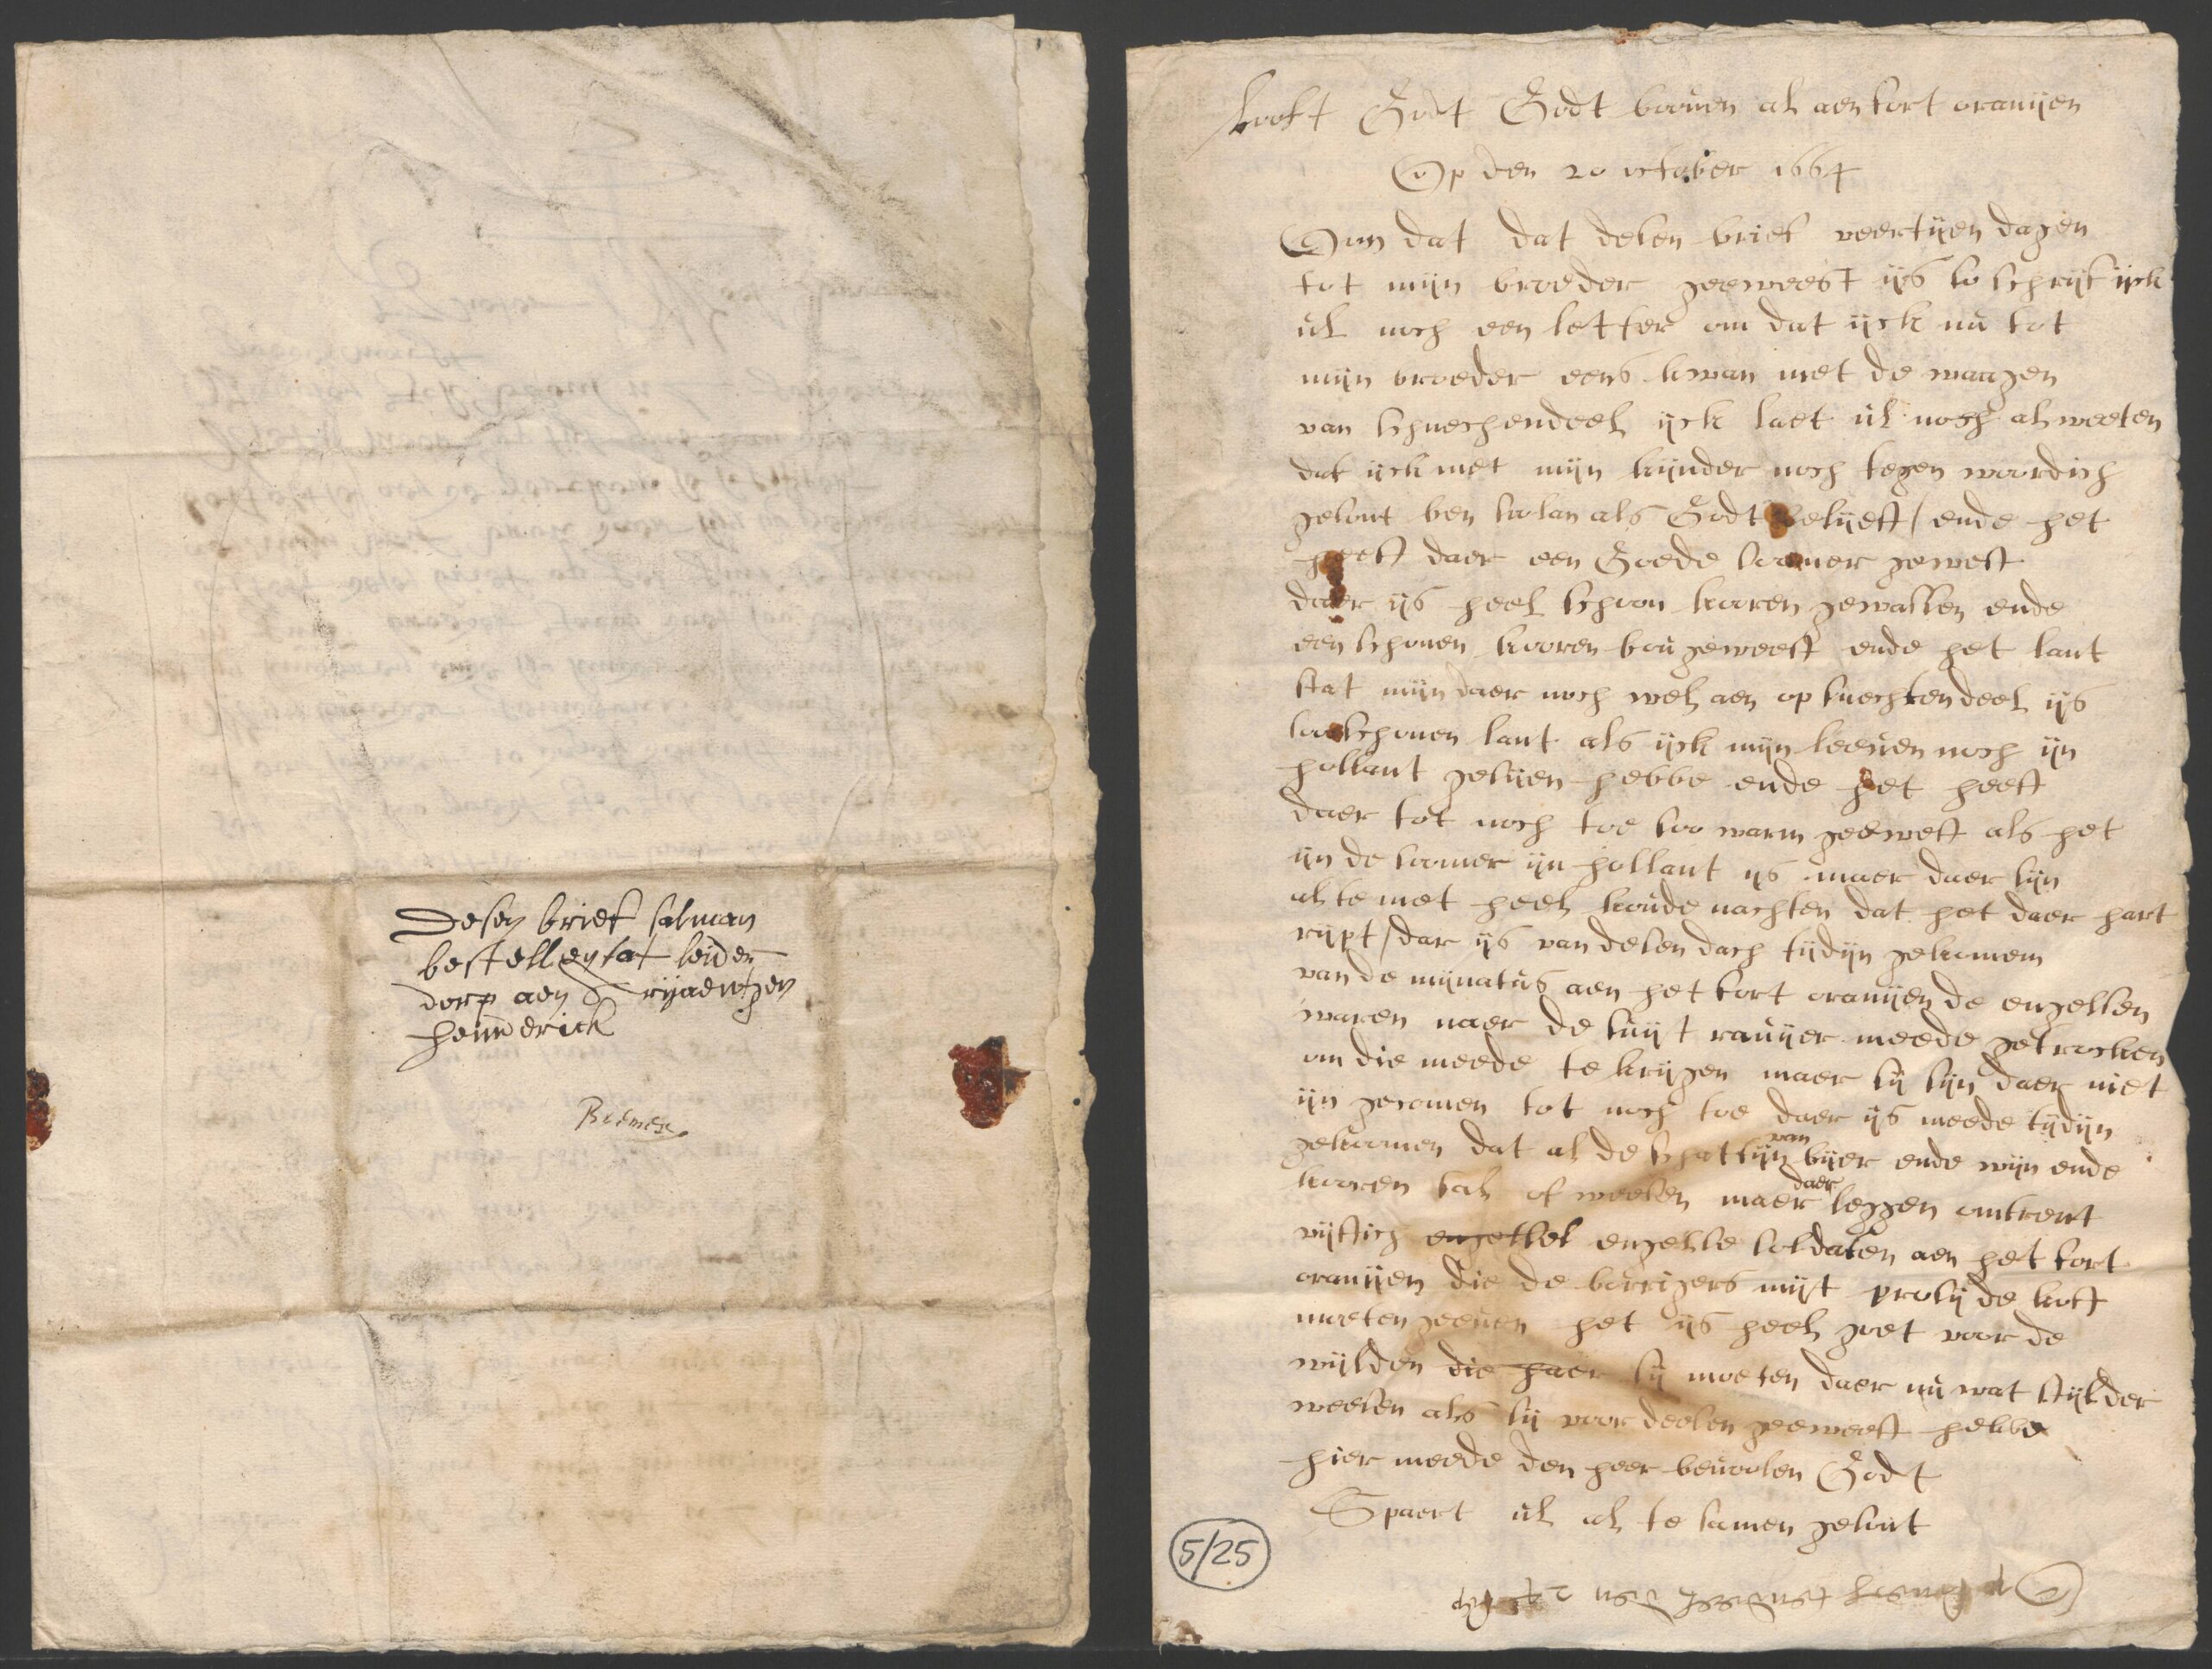 Desen brief salmen
bestellen tot leider
dorp aen Arijaentgen
heinderick
Looft Godt Godt booven al aen fort oranijen
Op den 20 october 1664
Om dat dat desen brief veertijen dagen
tot mijn broeder geeweest ijs so schrijf ijck
ul noch een letter om dat ijck nu tot
mijn broeder eens kwan met de waagen
van schnechendeel ijck laet ul noch al weeten
dat ijck met mijn kijnder noch tegen woordich
gesont ben solan als Godt belijeft / ende het
heeft daer een Goede soomer gewest
daer ijs heel schoon kooren gewassen ende
een schonen kooren bou geweest ende het lant
stat mijn daer noch wel aen op snechtendeel ijs
soo schonen lant als ijck mijn leeven noch ijn
hollant gesijen hebbe ende het heeft
daer tot noch toe soo warm geewest als het
ijn de soomer ijn hollant ijs maer daer sijn
altemet heel koude nachten dat het daer hart
rijpt / dar ijs van desen dach tijdijn gekomen
van de mijnatus aen het fort oranijen de engelsen
waren naer de suijt ravijer meede getrocken
om die meede te krijgen maer sij sijn daer niet
ijn gecomen tot noch toe daer ijs meede tijdijn
gekoomen dat al de schatsijn van bijer ende wijn ende
kooren sal of weesen maer daer leggen omtrent
vijftich engelse soldaten aen het fort
oranijen die de borrigers mijt profij de kost
moeten geeven het ijs heel goet voor de
wijlden die haer sij moeten daer nu wat stijlder
weesen als sij voor deesen geeweest hebbe
hier meede den heer bevoolen Godt
Spaert ul al te samen gesont
5/25